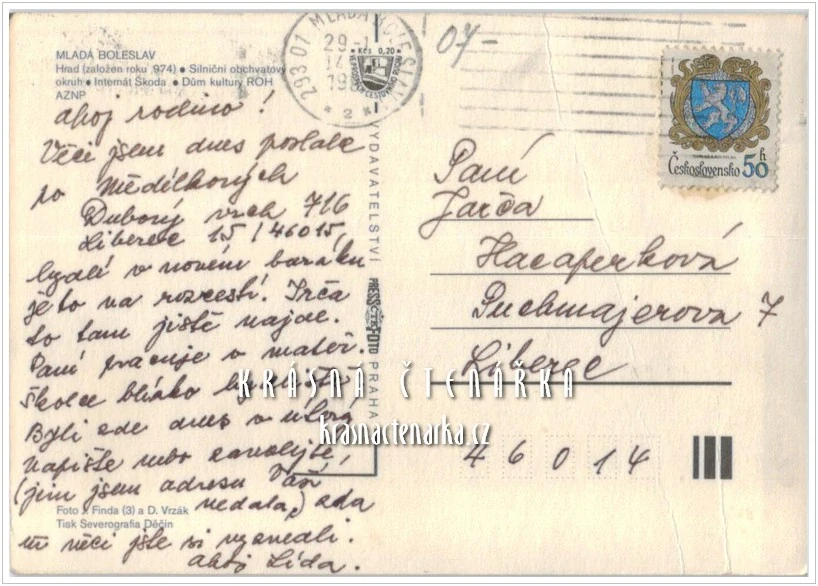 MLADÁ BOLESLAV
Hrad (založen roku 974) ● Silniční obchvatový
okruh ● Internát Škoda ● Dům kultury ROH
AZNP
ahoj rodino!
Věci jsem dnes poslala
po Nedělkových
Dubový vrch 716
Liberec 15 / 46015,
bydlí v novém baráku
je to na rozcestí. Irča
to tam jistě najde.
Paní pracuje v mateř.
školce blízko
Byli zde dnes v
napište nebo zavolejte,
(jim jsem adresu Vaši
nedala,) zda
věci jste si vyzvedli.
ahoj Lída.
Foto J. Finda (3) a D. Vrzák
Tisk Severografia Děčín
293 01 MLADÁ BOLESLAV
29.-1
14
2
Kčs 0,20
07-
VYDAVATELSTVÍ PRESSFOTO PRAHA
ČTK
Československo 50 h
Paní
Jarča
Hacaperková
Puchmajerova 7
Liberec
46014
KRÁSNÁ ČTENÁŘKA
krasnactenarka.cz